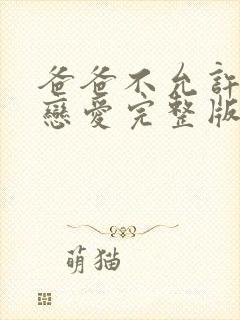 爸爸不允許
戀愛完整版
萌猫